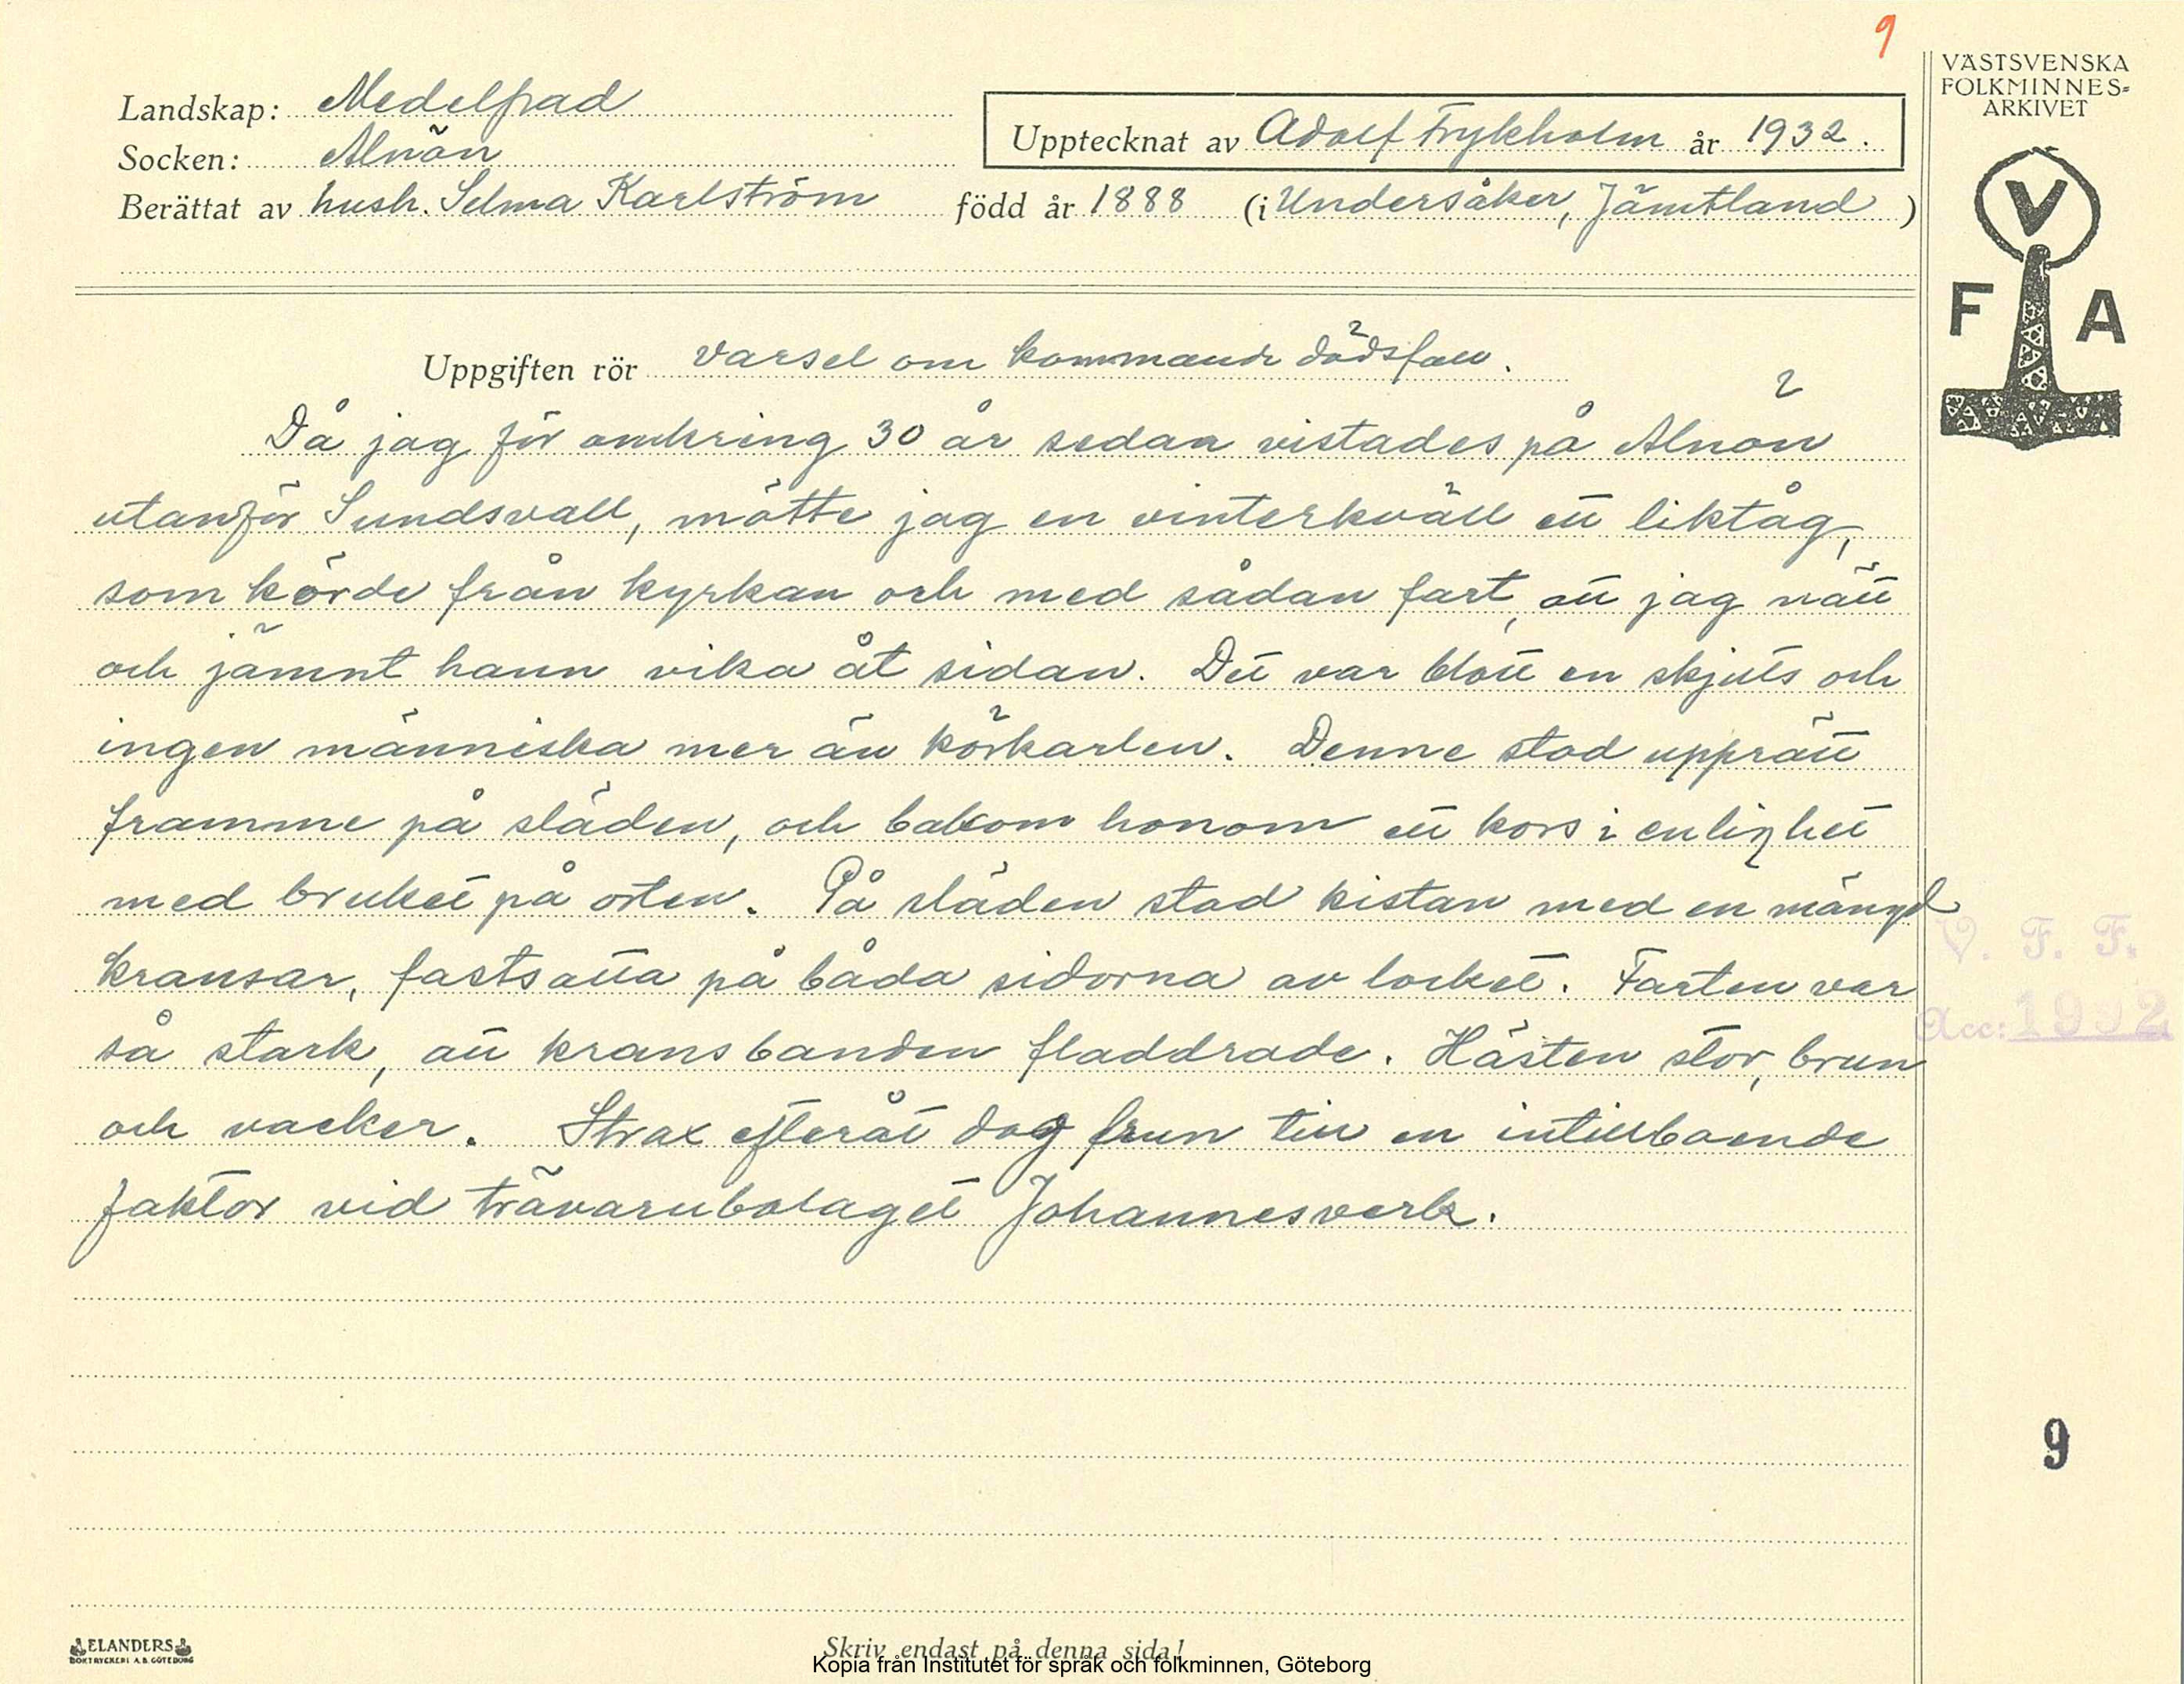 9
VÄSTSVENSKA
FOLKMINNES=
ARKIVET
Landskap: Medelpad
Socken: Alnön
Upptecknat av Adolf Frykholm år 1932.
Berättat av hush. Selma Karlström född år 1888 (i Undersåker, Jämtland)
V
F A
Uppgiften rör varsel om kommande dödsfall.
Då jag för omkring 30 år sedan vistades på Alnön
utanför Sundsvall, mötte jag en vinterkväll ett liktåg,
som körde från kyrkan och med sådan fart, att jag nätt
och jämnt hann vika åt sidan. Det var blott en skjuts och
ingen människa mer än körkarlen. Denne stod upprätt
framme på släden, och bakom honom ett kors i enlighet
med bruket på orten. På släden stod kistan med en mängd
kransar, fastsatta på båda sidorna av locket. Farten var
så stark, att kransbanden fladdrade. Hästen stor, brun
och vacker. Strax efteråt dog frun till en intillboende
faktor vid trävarubolaget Johannesverk.
V. F. F.
Acc: 1932
9
ELANDERS
BOKTRYCKERI A.B. GÖTEBORG
Skriv endast på denna sida!
Kopia från Institutet för språk och folkminnen, Göteborg